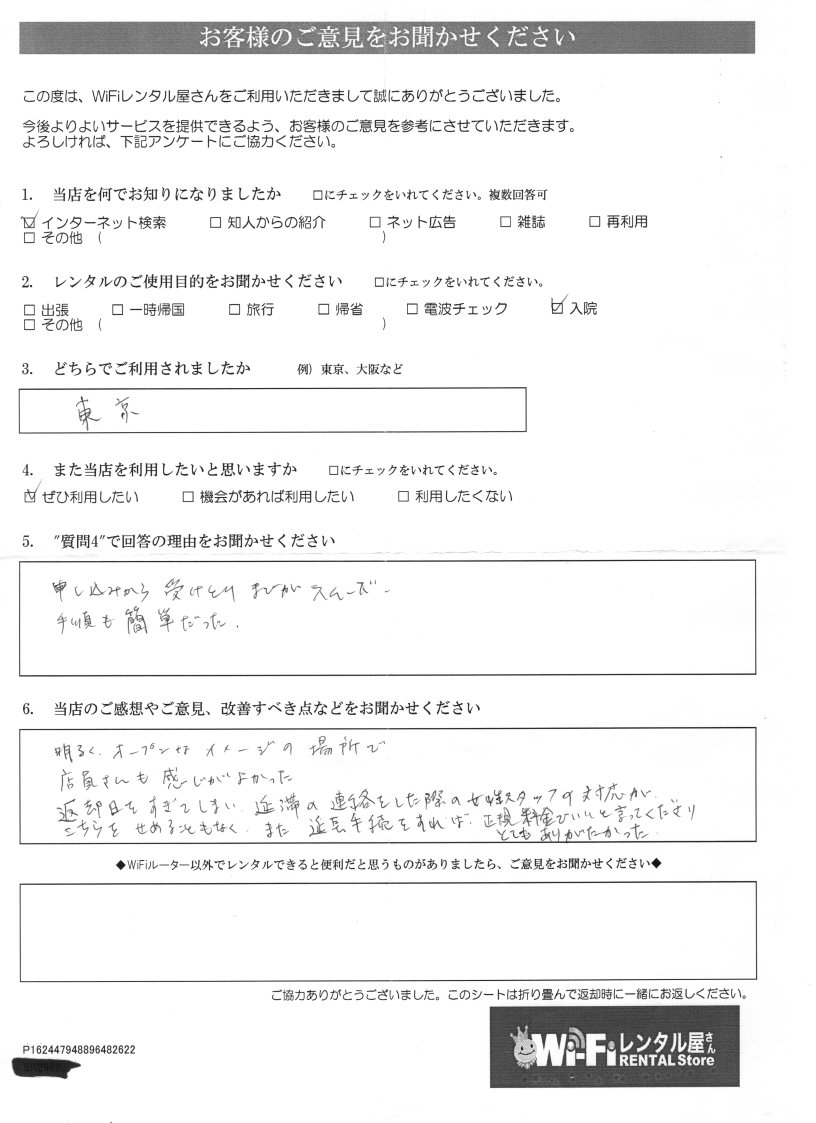 お客様のご意見をお聞かせください
この度は、WiFiレンタル屋さんをご利用いただきまして誠にありがとうございました。
今後よりよいサービスを提供できるよう、お客様のご意見を参考にさせていただきます。
よろしければ、下記アンケートにご協力ください。
1. 当店を何でお知りになりましたか □にチェックをいれてください。複数回答可
☑ インターネット検索 □ 知人からの紹介 □ ネット広告 □ 雑誌 □ 再利用
□ その他 ( )
2. レンタルのご使用目的をお聞かせください □にチェックをいれてください。
□ 出張 □ 一時帰国 □ 旅行 □ 帰省 □ 電波チェック ☑ 入院
□ その他 ( )
3. どちらでご利用されましたか 例) 東京、大阪など
東京
4. また当店を利用したいと思いますか □にチェックをいれてください。
☑ ぜひ利用したい □ 機会があれば利用したい □ 利用したくない
5. "質問4"で回答の理由をお聞かせください
申し込みから受けとりまでがスムーズ。
手順も簡単だった。
6. 当店のご感想やご意見、改善すべき点などをお聞かせください
明るく、オープンなイメージの場所で
店員さんも感じがよかった
返却日をすぎてしまい、延滞の連絡をした際の女性スタッフの対応が、
こちらをせめることもなく、また延長手続をすれば、正規料金でいいと言ってくださり
とてもありがたかった。
◆WiFiルーター以外でレンタルできると便利だと思うものがありましたら、ご意見をお聞かせください◆
ご協力ありがとうございました。このシートは折り畳んで返却時に一緒にお返しください。
P162447948896482622
Wi-Fiレンタル屋さん
RENTAL Store